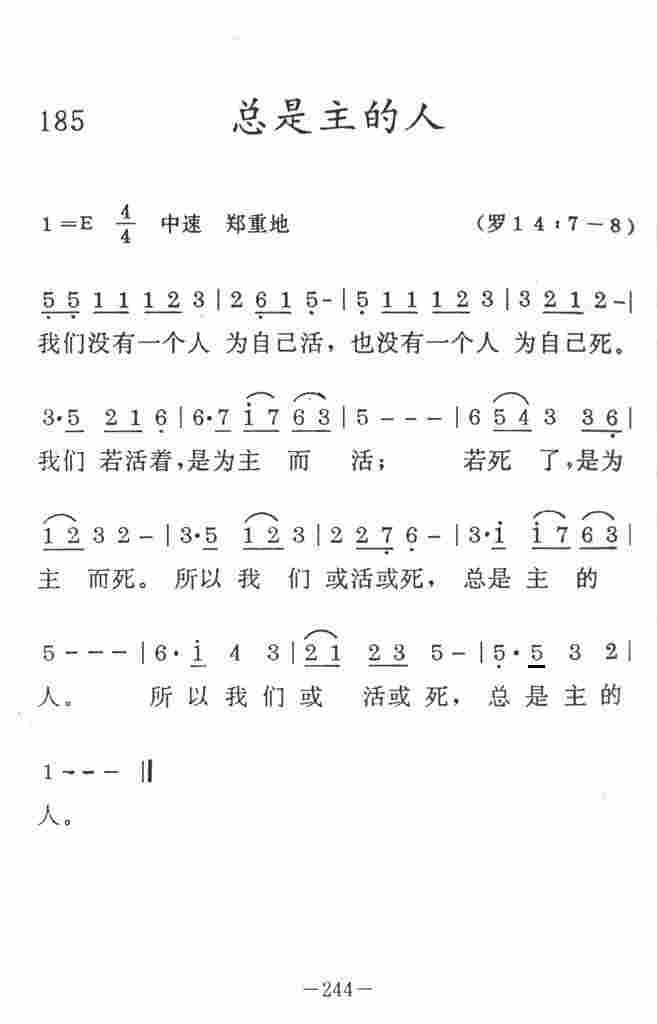 185 总是主的人
1=E 4/4 中速 郑重地 (罗14:7-8)
5 5 1 1 1 2 3 | 2 6 1 5 - | 5 1 1 1 2 3 | 3 2 1 2 - |
我们没有一个人 为自己活，也没有一个人 为自己死。
3·5 2 1 6 | 6·7 i 7 6 3 | 5 - - - | 6 5 4 3 3 6 |
我们 若活着，是为主 而 活； 若死 了，是为
1 2 3 2 - | 3·5 1 2 3 | 2 2 7 6 - | 3·i i 7 6 3 |
主 而死。 所以 我 们 或活或死， 总是 主 的
5 - - - | 6·i 4 3 | 2 1 2 3 5 - | 5·5 3 2 |
人。 所 以 我 们 或 活或 死， 总 是 主 的
1 - - - ‖
人。
-244-